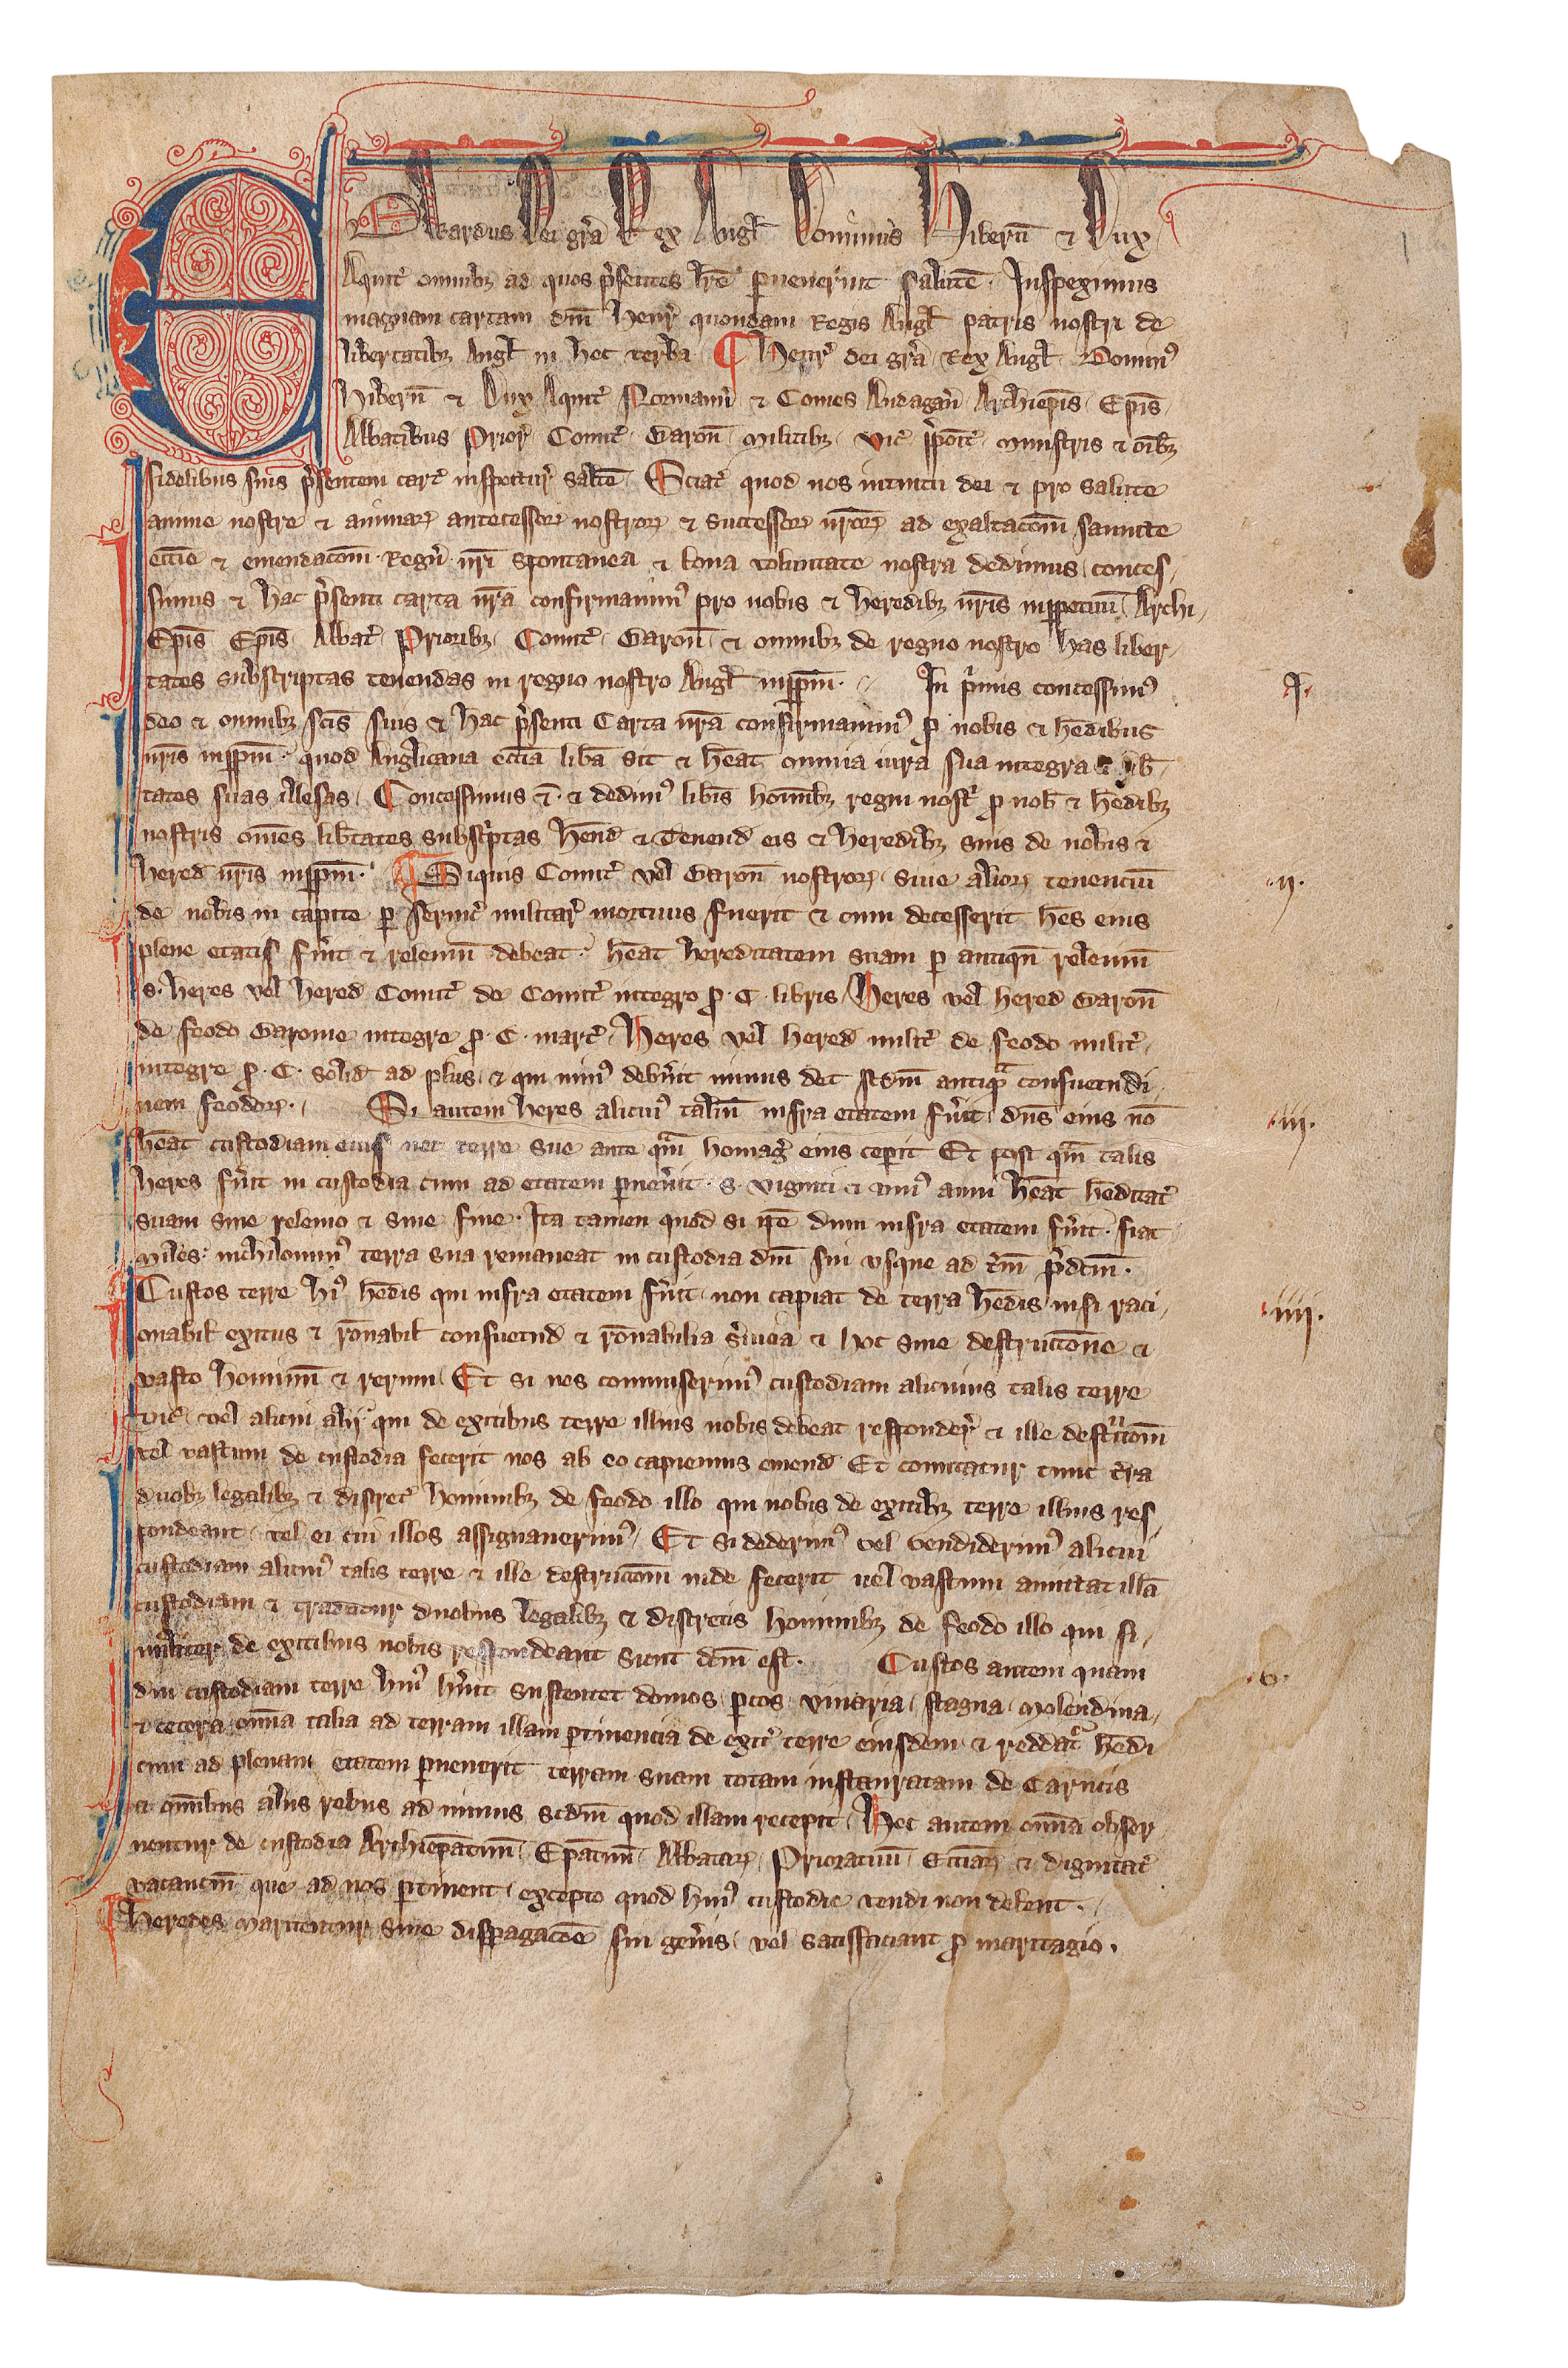 Edwardus Dei gr̄a Rex Angl̄ Dominus Hibern̄ & Dux
Aquit̄ omnibꝫ ad quos p̄sentes l̄re puenerint salutē. Inspeximus
magnam cartam dn̄i Henr̄ quondam Regis Angl̄ patris nostri de
libertatibꝫ Angl̄ in hec verba ¶ Henr̄ dei gr̄a Rex Angl̄ Domin⁹
Hibern̄ & Dux Aquit̄ Normann̄ & Comes Andagan̄ Archiep̄is Ep̄is
Abbatibus Prior̄ Comit̄ Baron̄ Militibꝫ vic̄ p̄poit̄ ministris & oībꝫ
fidelibus suis p̄sentem cart̄ inspectur̄ sal̄tē. Sciat̄ quod nos intuitu dei & pro salute
anime nostre & animaꝝ antecessoꝝ nostroꝝ & successoꝝ nr̄oꝝ ad exaltac̄om̄ sauncte
ecc̄ie & emendac̄om̄ Regn̄ nr̄i spontanea & bona voluntate nostra dedimus conces
simus & hac p̄senti carta nr̄a confirmauim⁹ pro nobis & heredibꝫ nr̄is inꝑpetuū Archi
Ep̄is Ep̄is Abbat̄ Prioribꝫ Comit̄ Baron̄ & omnibꝫ de regno nostro has liber
tates subscriptas tenendas in regno nostro Angl̄ inꝑpm̄. In p̄mis concessim⁹
I.
deo & omnibꝫ sc̄is suis & hac p̄senti Carta nr̄a confirmauim⁹ ꝓ nobis & hēdibus
nr̄is inꝑpm̄ quod Anglicana ecc̄ia lib̄a sit & hēat omnia iura sua integra & lib̄
tates suas illesas. Concessimus & & dedim⁹ lib̄is hominibꝫ regni nost̄ ꝓ nob̄ & hēdibꝫ
nostris om̄es lib̄tates subsc̄ptas hēnd̄ & Tenend̄ eis & heredibꝫ suis de nobis &
hered̄ nr̄is inꝑpm̄. ¶ Siquis Comit̄ vel Baron̄ nostroꝝ siue alioꝝ tenenciū
ij.
de nobis in capite ꝑ seruic̄ militar̄ mortuus fuerit & cum decesserit hēs eius
plene etatis fūit & releuiū debeat hēat hereditatem suam ꝑ antiqū releuium
s. heres vel hered̄ Comit̄ de Comit̄ integro ꝓ .C. libris Heres vel hered̄ Baron̄
de feodo Baronie integre ꝓ .C. marc̄. Heres vel hered̄ milit̄ de feodo milit̄
integre ꝓ .C. solid̄ ad plus & qui min⁹ debūit minus det scd̄m antiquā consuetudi
nem feodoꝝ. Si autem heres alicui⁹ taliū infra etatem fūit dn̄s eius nō
iij.
hēat custodiam eius nec terre sue ante qm̄ homaḡ eius ceperit Et post qm̄ talis
heres fūit in custodia cum ad etatem puenīt s. viginti & uni⁹ anni hēat hēditat̄
suam sine releuio & sine fine. Ita tamen quod si ip̄e dum infra etatem fūit fiat
miles: nichilomin⁹ terra sua remaneat in custodia dn̄i sui vsque ad t̄m p̄dc̄m.
Custos terre hi⁹ hēdis qui infra etatem fūit non capiat de terra hēdis nisi raci
iiij.
onabil̄ exitus & r̄onabil̄ consuetud̄ & r̄onabilia s̄uicia & hoc sine destructōne &
vasto hominū & rerum Et si nos commiserim⁹ custodiam alicuius talis terre
vic̄ vel alicui alij qui de exitibus terre illius nobis debeat respondēr & ille destructōm
vel vastum de custodia fecerit nos ab eo capiemus emend̄ Et comittatur tunc t̄ra
duobꝫ legalibꝫ & discret̄ hominibꝫ de feodo illo qui nobis de exitibꝫ terre illius res
pondeant vel ei cui illos assignauerim⁹. Et si dederim⁹ vel vendiderim⁹ alicui
custodiam alicui⁹ talis terre & ille destructōm inde fecerit uel vastum amittat illā
custodiam & tradatur duobus legalibꝫ & discretis hominibꝫ de feodo illo qui si
militer de exitibus nobis respondeant sicut dc̄m est. Custos autem quam
v.
diu custodiam terre hui⁹ hūit sustentet domos ꝑcos viuaria stagna molendina
& cetera om̄ia talia ad terram illam ꝑtinencia de exit̄ terre eiusdem & reddat̄ hēdi
cum ad plenam etatem puenerit terram suam totam instauratam de Carucis
& om̄ibus aliis rebus ad minus scd̄m quod illam recepit. Hec autem om̄ia obser
uentur de custodia Archiep̄atuū Ep̄atuū Abbataꝝ Prioratuū Ecc̄iaꝝ & dignitat̄
vacanciū que ad nos ꝑtinent excepto quod hui⁹ custodie vendi non debent.
Heredes maritentur sine disꝑagac̄oē sui gen̄is vel satisfaciant ꝓ maritagio.